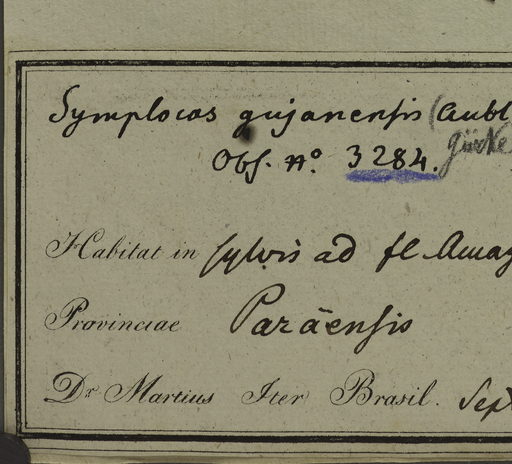 Symplocos gujanensis (Aubl
Gürke
Obs. No. 3284.
Habitat in sylvis ad fl Amaz
Provinciae Paraënsis
Dr Martius Iter Brasil. Sept